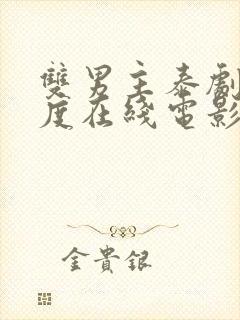 雙男主泰劇
度在綫電影
金貴銀